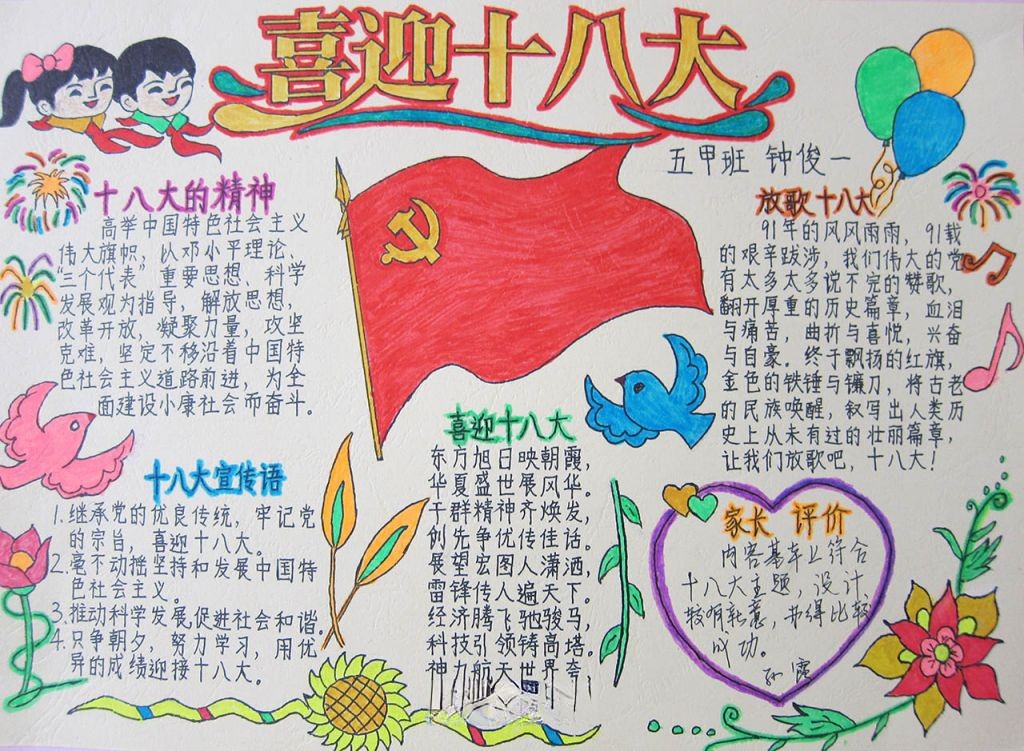 喜迎十八大
五甲班 钟俊一
十八大的精神
高举中国特色社会主义
伟大旗帜，以邓小平理论、
“三个代表”重要思想、科学
发展观为指导，解放思想，
改革开放，凝聚力量，攻坚
克难，坚定不移沿着中国特
色社会主义道路前进，为全
面建设小康社会而奋斗。
十八大宣传语
1.继承党的优良传统，牢记党
的宗旨，喜迎十八大。
2.毫不动摇坚持和发展中国特
色社会主义。
3.推动科学发展,促进社会和谐。
4.只争朝夕，努力学习，用优
异的成绩迎接十八大。
喜迎十八大
东方旭日映朝霞，
华夏盛世展风华。
干群精神齐焕发，
创先争优传佳话。
展望宏图人潇洒，
雷锋传人遍天下。
经济腾飞驰骏马，
科技引领铸高塔。
神九航天世界夸
放歌十八大
91年的风风雨雨，91载
的艰辛跋涉，我们伟大的党
有太多太多说不完的赞歌，
翻开厚重的历史篇章，血泪
与痛苦，曲折与喜悦，兴奋
与自豪。终于飘扬的红旗，
金色的铁锤与镰刀，将古老
的民族唤醒，叙写出人类历
史上从未有过的壮丽篇章，
让我们放歌吧，十八大！
家长 评价
内容基本上符合
十八大主题，设计
较有新意，办得比较
成功。